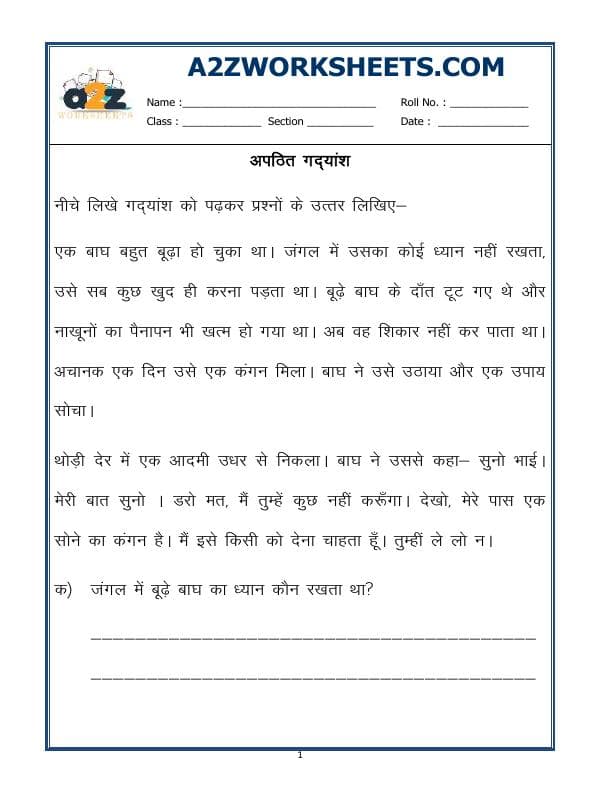 A2ZWORKSHEETS.COM
a2z
WORKSHEETS
Name :______________________________ Roll No. : ____________
Class : ____________ Section __________ Date : ______________
अपठित गद्यांश
नीचे लिखे गद्यांश को पढ़कर प्रश्नों के उत्तर लिखिए–
एक बाघ बहुत बूढ़ा हो चुका था। जंगल में उसका कोई ध्यान नहीं रखता,
उसे सब कुछ खुद ही करना पड़ता था। बूढ़े बाघ के दाँत टूट गए थे और
नाखूनों का पैनापन भी खत्म हो गया था। अब वह शिकार नहीं कर पाता था।
अचानक एक दिन उसे एक कंगन मिला। बाघ ने उसे उठाया और एक उपाय
सोचा।
थोड़ी देर में एक आदमी उधर से निकला। बाघ ने उससे कहा– सुनो भाई।
मेरी बात सुनो । डरो मत, मैं तुम्हें कुछ नहीं करूँगा। देखो, मेरे पास एक
सोने का कंगन है। मैं इसे किसी को देना चाहता हूँ। तुम्हीं ले लो न।
क) जंगल में बूढ़े बाघ का ध्यान कौन रखता था?
________________________________________
________________________________________
1